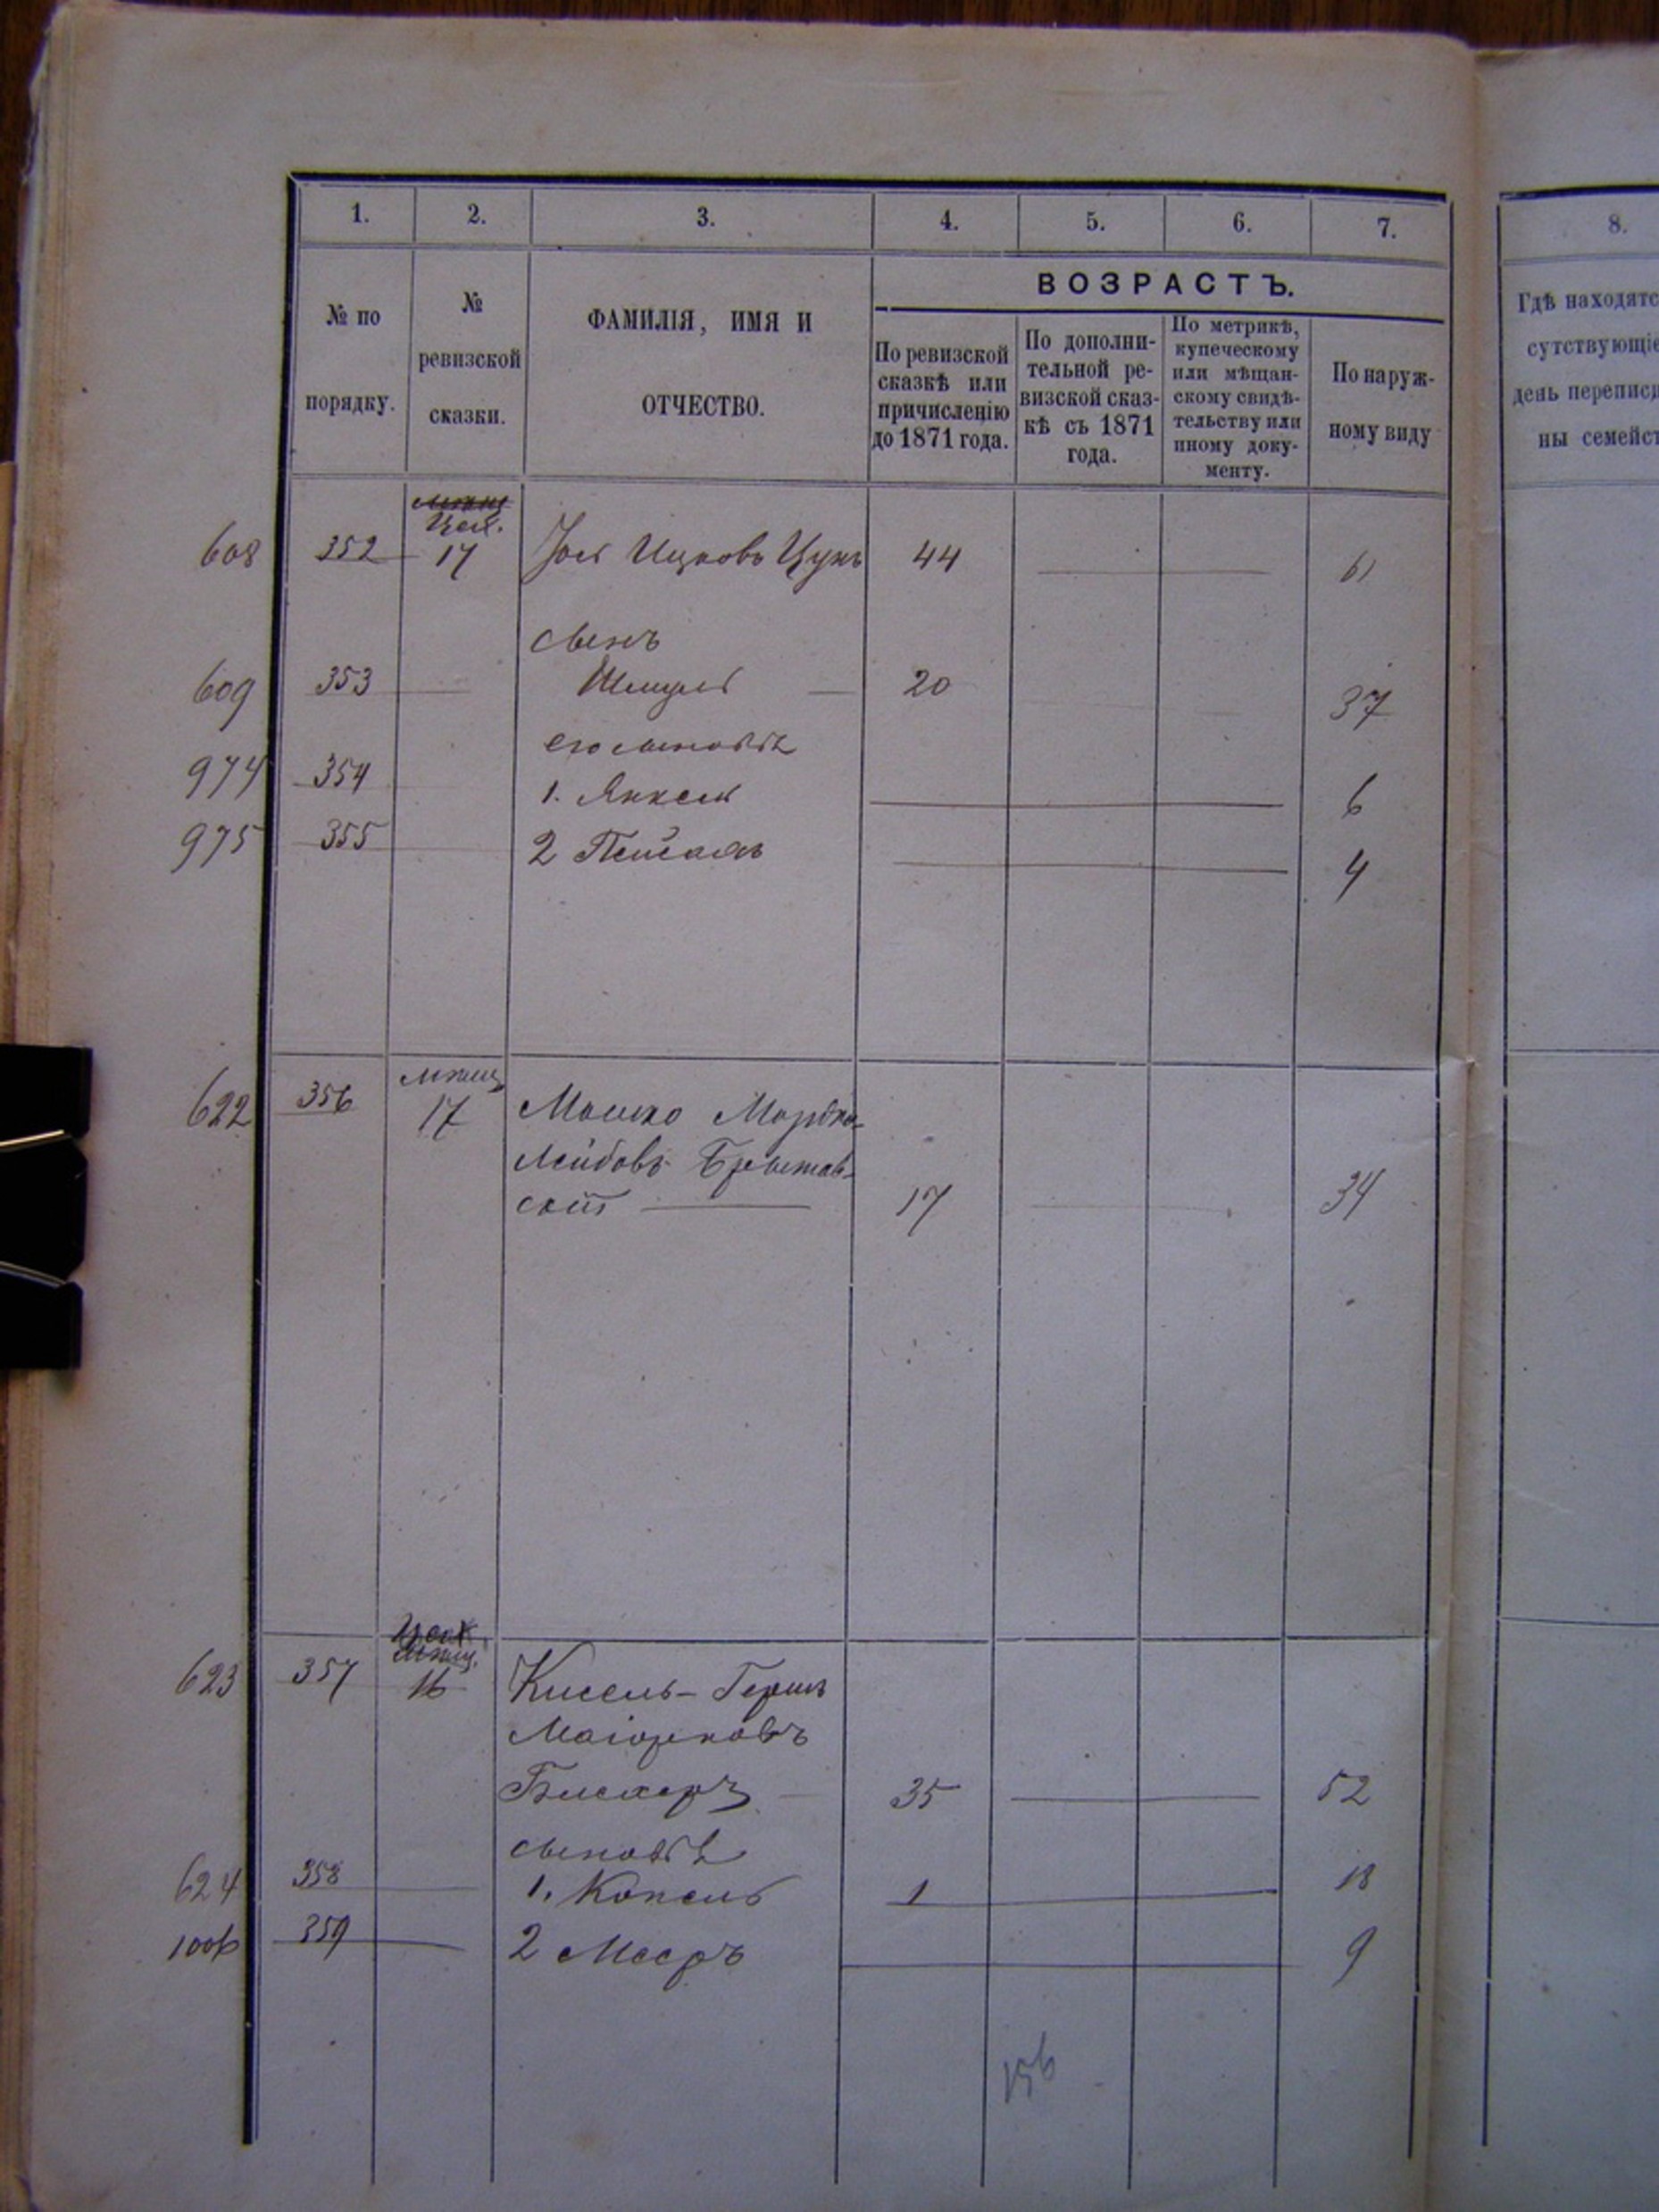 1. 2. 3. 4. 5. 6. 7. 8.
ВОЗРАСТЪ.
№ по
порядку.
№
ревизской
сказки.
ФАМИЛІЯ, ИМЯ И
ОТЧЕСТВО.
По ревизской
сказкѣ или
причисленію
до 1871 года.
По дополни-
тельной ре-
визской сказ-
кѣ съ 1871
года.
По метрикѣ,
купеческому
или мѣщан-
скому свидѣ-
тельству или
иному доку-
менту.
По наруж-
ному виду
Гдѣ находятс
сутствующіе
день переписи
ны семейст
Цех.
608 352 17 Іос Ицковъ Цукъ 44 61
сынъ
609 353 Шмуль 20 37
его сыновья
974 354 1. Янкель 6
975 355 2 Пейсахъ 4
мѣщ
622 356 17 Мошко Мордко-
Лейбовъ
скій 17 34
мѣщ.
623 357 16 Кисель-Гершъ
Маіорковъ
35 52
сыновья
624 358 1. Копель 1 18
1006 359 2 Мееръ 9
156